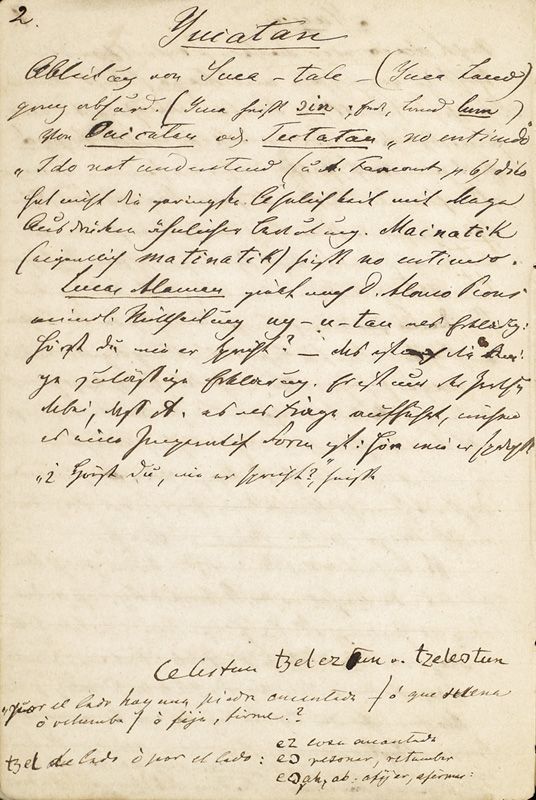 2.
Yucatan
Ableitung von Yuca - tale - (Yuca Land)
ganz absurd. (Yuca heißt ɔin, Land lum)
Von Ouicatan od. Tectatan „no entiendo"
„I do not understand (u. A. Fancourt p 6) dies
hat nicht die geringste Ähnlichkeit mit Maya
Ausdrücken ähnlicher Bedeutung. Mainatik
(eigentlich matinatik) heißt no entiendo.
Lucas Alaman giebt nach D. Alonso Peons
mündl. Mittheilung uy-u-tan als Erklärg:
hörst du wie er spricht? — das ist die
zulässige Erklärung. Er ist nur der
dabei, daß A. es als Frage aufführt, während
es eine Imperativ Form ist: höre wie er spricht
„¿ Hörst du, wie er spricht?", heißt
Celestun tzeleztun o. tzelestun
„por el lado hay una piedra encantada / ó que suena
ó retumba / ó fija, firme.?
tzel de lado ó por el lado: ez cosa encantada
eɔ resonar, retumbar
eɔ ah, ab: afijar, afirmar: